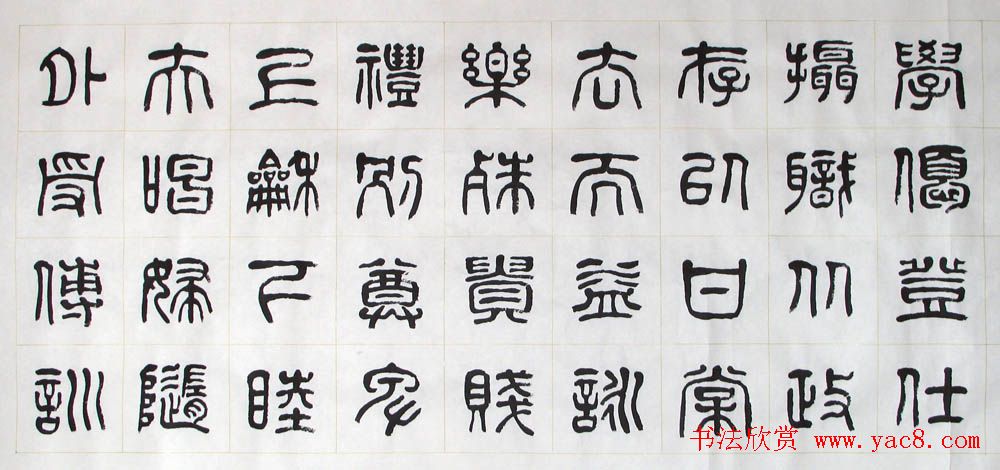 學優登仕
攝職从政
存以甘棠
去而益詠
樂殊貴賤
禮別尊卑
上龢下睦
夫唱婦隨
外受傅訓
书法欣赏 www.yac8.com